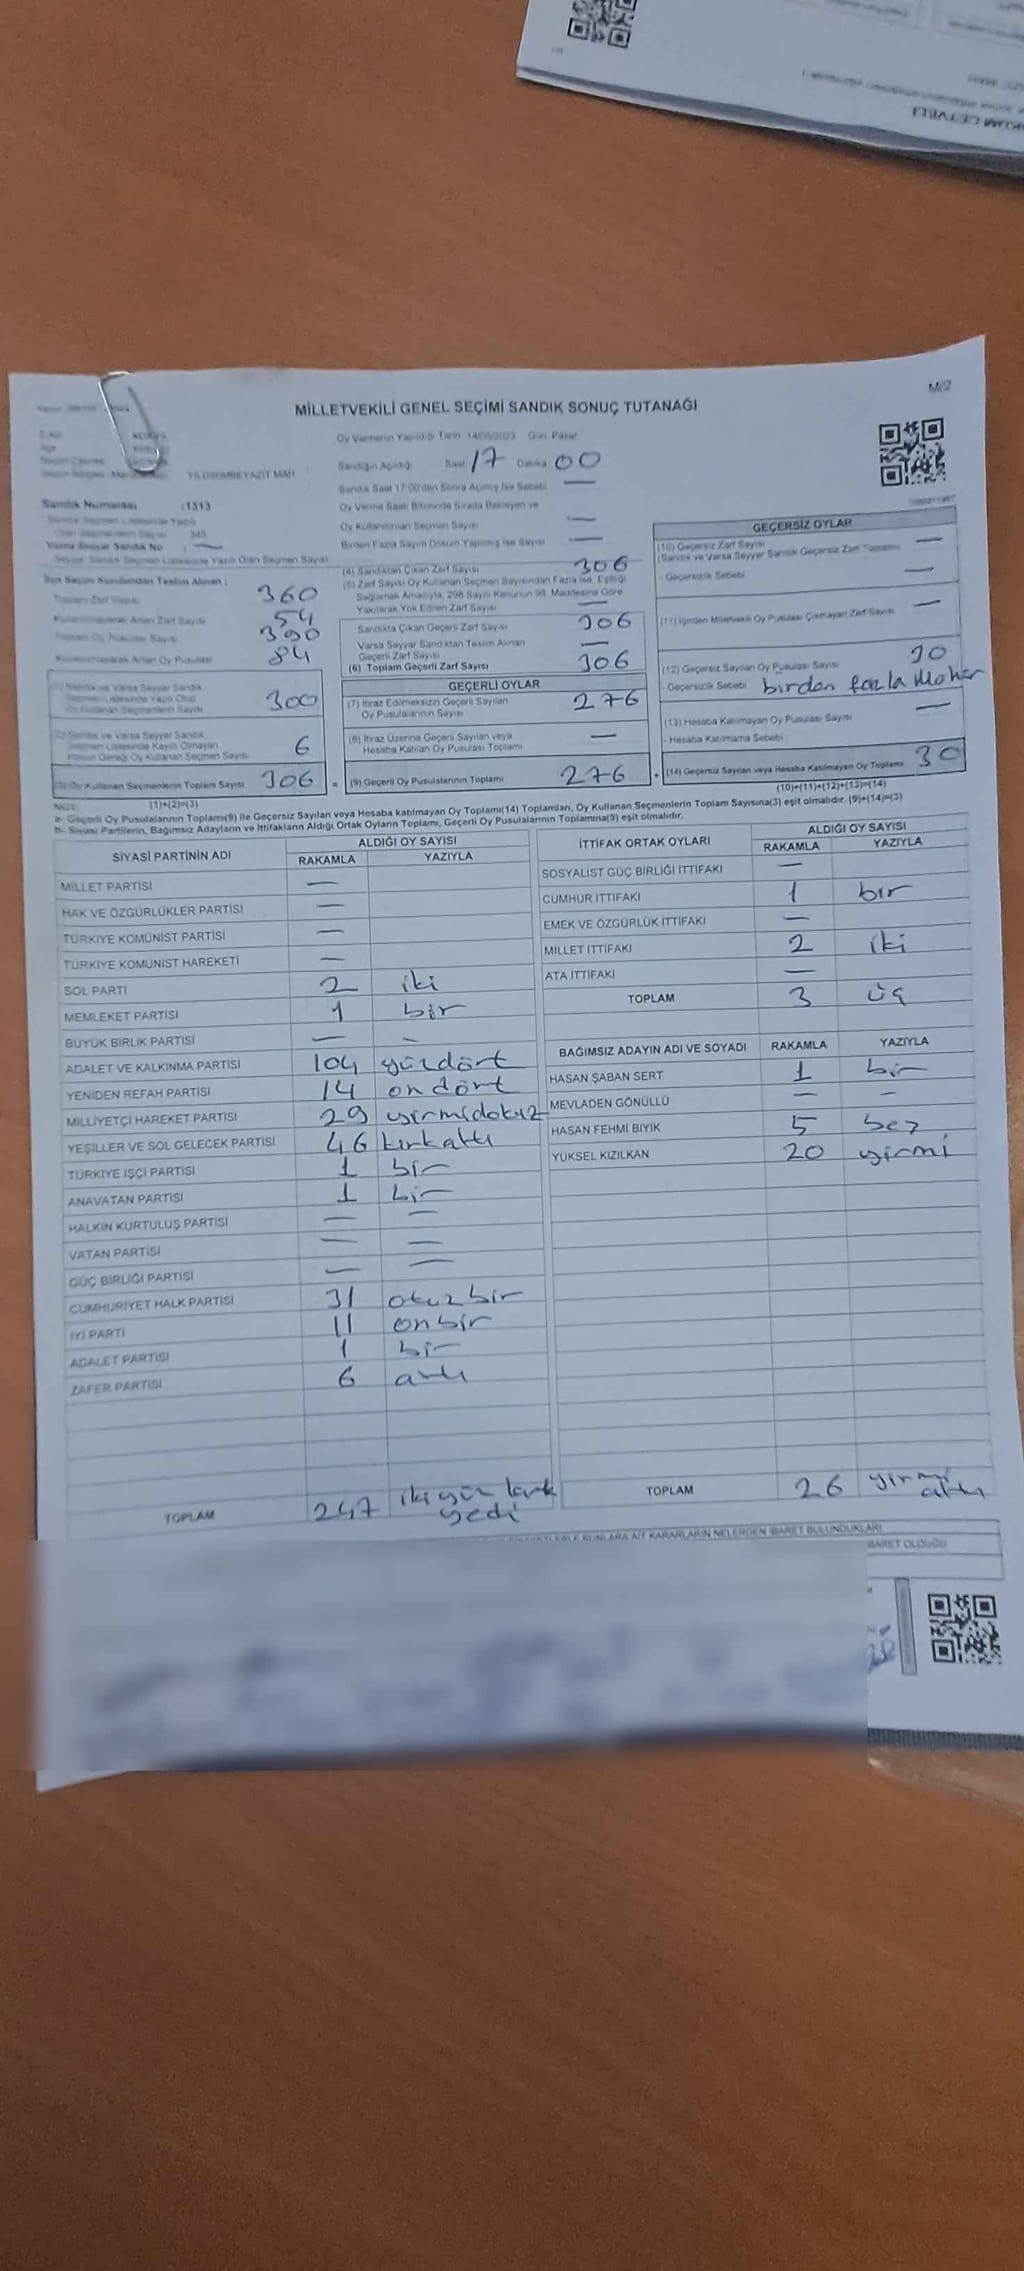 M/2
MİLLETVEKİLİ GENEL SEÇİMİ SANDIK SONUÇ TUTANAĞI
Oy Vermenin Yapıldığı Tarih 14/05/2023 Gün Pazar
Sandığın Açıldığı Saat 17 Dakika 00
YILDIRIMBEYAZIT MAH.
Sandık Saat 17:00'den Sonra Açılmış İse Sebebi —
Sandık Numarası :1313
Oy Verme Saati Bitiminde Sırada Bekleyen ve
Oy Kullandırılan Seçmen Sayısı —
345
Varsa Seyyar Sandık No —
Birden Fazla Sayım Döküm Yapılmış İse Sayısı —
İlçe Seçim Kurulundan Teslim Alınan :
Toplam Zarf Sayısı 360
Kullanılmayarak Artan Zarf Sayısı 54
Toplam Oy Pusulası Sayısı 390
Kullanılmayarak Artan Oy Pusulası 84
(1) Sandık ve Varsa Seyyar Sandık
Seçmen Listesinde Yazılı Olup
Oy Kullanan Seçmenlerin Sayısı 300
(2) Sandık ve Varsa Seyyar Sandık
Seçmen Listesinde Kayıtlı Olmayan
Kanun Gereği Oy Kullanan Seçmen Sayısı 6
(3) Oy Kullanan Seçmenlerin Toplam Sayısı 306
(1)+(2)=(3)
(4) Sandıktan Çıkan Zarf Sayısı 306
(5) Zarf Sayısı Oy Kullanan Seçmen Sayısından Fazla İse, Eşitliği
Sağlamak Amacıyla; 298 Sayılı Kanunun 98. Maddesine Göre
Yakılarak Yok Edilen Zarf Sayısı —
Sandıkta Çıkan Geçerli Zarf Sayısı 306
Varsa Seyyar Sandıktan Teslim Alınan
Geçerli Zarf Sayısı —
(6) Toplam Geçerli Zarf Sayısı 306
GEÇERLİ OYLAR
(7) İtiraz Edilmeksizin Geçerli Sayılan
Oy Pusulalarının Sayısı 276
(8) İtiraz Üzerine Geçerli Sayılan veya
Hesaba Katılan Oy Pusulası Toplamı —
= (9) Geçerli Oy Pusulalarının Toplamı 276
GEÇERSİZ OYLAR
(10) Geçersiz Zarf Sayısı
(Sandık ve Varsa Seyyar Sandık Geçersiz Zarf Toplamı) —
- Geçersizlik Sebebi —
(11) İçinden Milletvekili Oy Pusulası Çıkmayan Zarf Sayısı —
(12) Geçersiz Sayılan Oy Pusulası Sayısı 30
- Geçersizlik Sebebi birden fazla Mohür
(13) Hesaba Katılmayan Oy Pusulası Sayısı —
- Hesaba Katılmama Sebebi
+ (14) Geçersiz Sayılan veya Hesaba Katılmayan Oy Toplamı 30
(10)+(11)+(12)+(13)=(14)
NOT:
a- Geçerli Oy Pusulalarının Toplamı(9) ile Geçersiz Sayılan veya Hesaba katılmayan Oy Toplamı(14) Toplamları, Oy Kullanan Seçmenlerin Toplam Sayısına(3) eşit olmalıdır. (9)+(14)=(3)
b- Siyasi Partilerin, Bağımsız Adayların ve İttifakların Aldığı Ortak Oyların Toplamı, Geçerli Oy Pusulalarının Toplamına(9) eşit olmalıdır.
SİYASİ PARTİNİN ADI ALDIĞI OY SAYISI
RAKAMLA YAZIYLA
MİLLET PARTİSİ —
HAK VE ÖZGÜRLÜKLER PARTİSİ —
TÜRKİYE KOMÜNİST PARTİSİ —
TÜRKİYE KOMÜNİST HAREKETİ —
SOL PARTİ 2 iki
MEMLEKET PARTİSİ 1 bir
BÜYÜK BİRLİK PARTİSİ — —
ADALET VE KALKINMA PARTİSİ 104 yüzdört
YENİDEN REFAH PARTİSİ 14 ondört
MİLLİYETÇİ HAREKET PARTİSİ 29 yirmidokuz
YEŞİLLER VE SOL GELECEK PARTİSİ 46 kırkaltı
TÜRKİYE İŞÇİ PARTİSİ 1 bir
ANAVATAN PARTİSİ 1 bir
HALKIN KURTULUŞ PARTİSİ — —
VATAN PARTİSİ — —
GÜÇ BİRLİĞİ PARTİSİ — —
CUMHURİYET HALK PARTİSİ 31 otuzbir
İYİ PARTİ 11 onbir
ADALET PARTİSİ 1 bir
ZAFER PARTİSİ 6 altı
TOPLAM 247 ikiyüz kırk
yedi
İTTİFAK ORTAK OYLARI ALDIĞI OY SAYISI
RAKAMLA YAZIYLA
SOSYALİST GÜÇ BİRLİĞİ İTTİFAKI —
CUMHUR İTTİFAKI 1 bir
EMEK VE ÖZGÜRLÜK İTTİFAKI —
MİLLET İTTİFAKI 2 iki
ATA İTTİFAKI —
TOPLAM 3 üç
BAĞIMSIZ ADAYIN ADI VE SOYADI RAKAMLA YAZIYLA
HASAN ŞABAN SERT 1 bir
MEVLADEN GÖNÜLLÜ — —
HASAN FEHMİ BIYIK 5 beş
YÜKSEL KIZILKAN 20 yirmi
TOPLAM 26 yirmi
altı
BUNLARA AİT KARARLARIN NELERDEN İBARET BULUNDUKLARI
İBARET OLDUĞU